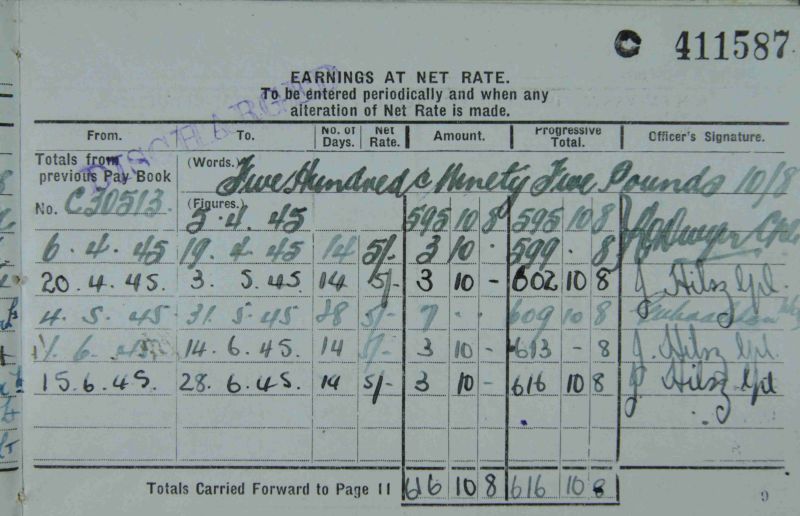 C 411587
EARNINGS AT NET RATE.
To be entered periodically and when any
alteration of Net Rate is made.
DISCHARGED
From. To. No. of Days. Net Rate. Amount. Progressive Total. Officer's Signature.
Totals from previous Pay Book (Words.) Five Hundred & Ninety Five Pounds 10/8
No. C30513. (Figures.) 5.4.45 595 10 8 595 10 8
6.4.45 19.4.45 14 5/- 3 10 . 599 . 8 Cpl
20.4.45. 3.5.45 14 5/- 3 10 - 602 10 8 J. Cpl.
4.5.45 31.5.45 28 5/- 7 . . 609 10 8
1.6.45 14.6.45. 14 5/- 3 10 - 613 - 8 J. Cpl.
15.6.45. 28.6.45. 14 5/- 3 10 - 616 10 8 J. Cpl
Totals Carried Forward to Page 11 616 10 8 616 10 8
9